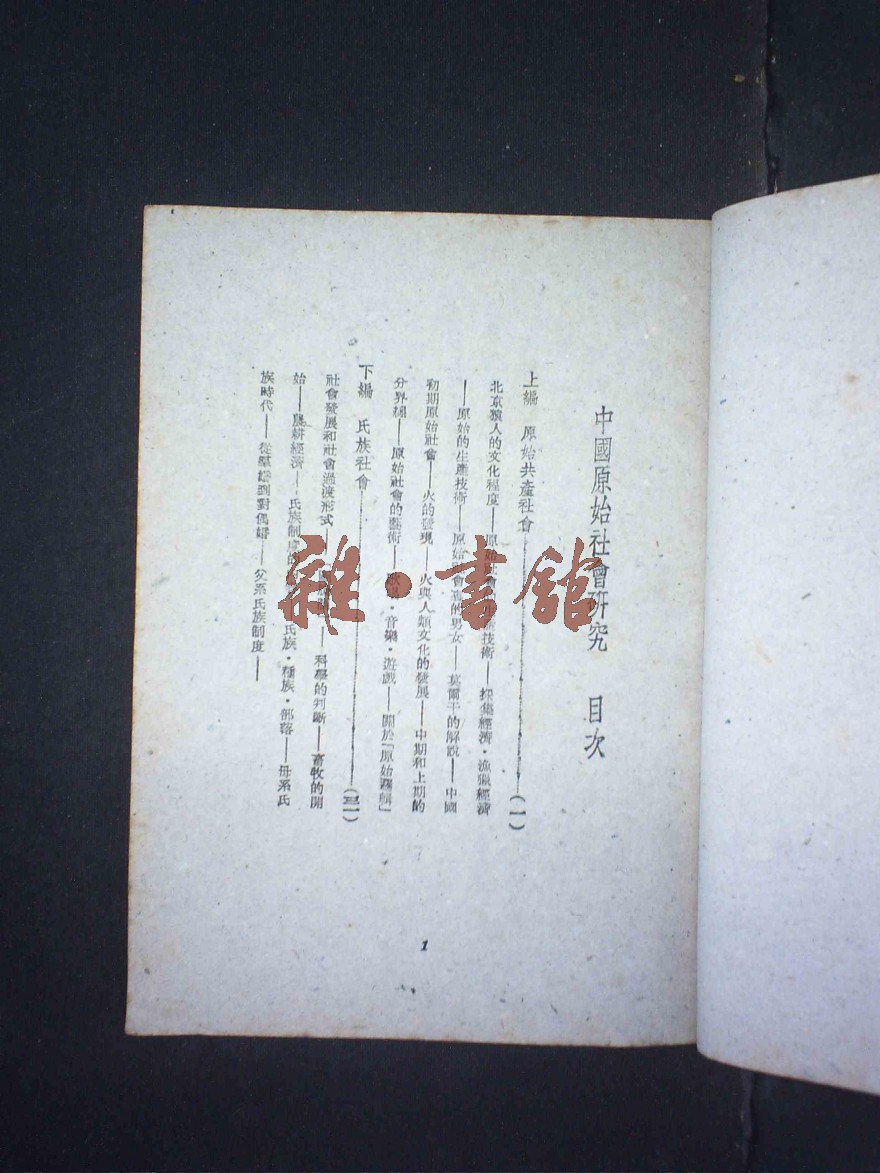 中國原始社會研究 目次
上編 原始共產社會 (一)
北京猿人的文化程度——原始社會 技術——採集經濟·漁獵經濟
——原始的生產技術——原始社會 的男女——莫爾干的解說——中國
初期原始社會——火的發現——火與人類文化的發展——中期和上期的
分界線——原始社會的藝術—— ·音樂·遊戲——關於「原始邏輯」
下編 氏族社會 (三一)
社會發展和社會過渡形式—— ——科學的判斷——畜牧的開
始——農耕經濟——氏族制度的 氏族·種族·部落——母系氏
族時代——從羣婚到對偶婚——父系氏族制度——
1
雜·書館